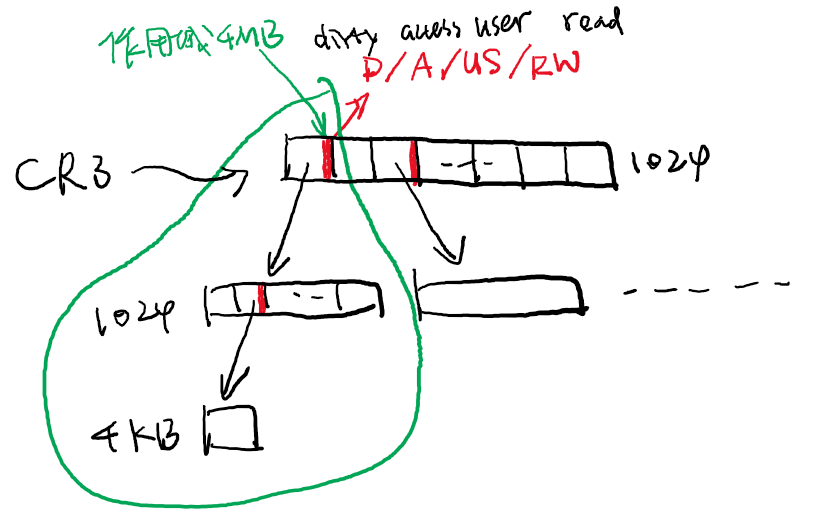 作用域4MB dirty auess user read
D/A/US/RW
CR3
1024
1024
4KB